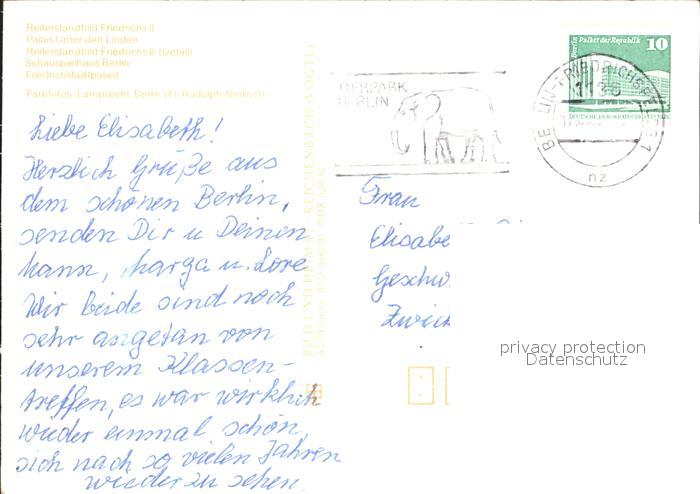 Reiterstandbild Friedrichs II.
Palais Unter den Linden
Reiterstandbild Friedrichs II. (Detail)
Schauspielhaus Berlin
Friedrichstadtpalast
Farbfotos: Lamprecht, Berlin (4), Rudolph-Berlin (1)
Liebe Elisabeth!
Herzlich Grüße aus
dem schönen Berlin,
senden Dir u Deinen
Mann, Marga u. Lore
Wir beide sind noch
sehr angetan von
unserem Klassen-
treffen, es war wirklich
wieder einmal schön,
sich nach so vielen Jahren
wieder zu sehen.
BILD UND HEIMAT REICHENBACH (VOGTL)
TIERPARK
BERLIN
Berlin Palast der Republik
10
DEUTSCHE DEMOKRATISCHE REPUBLIK
BERLIN-FRIEDRICHSFELDE 1
1136
nz
Frau
Elisabe
Geschw.
Zwick
privacy protection
Datenschutz